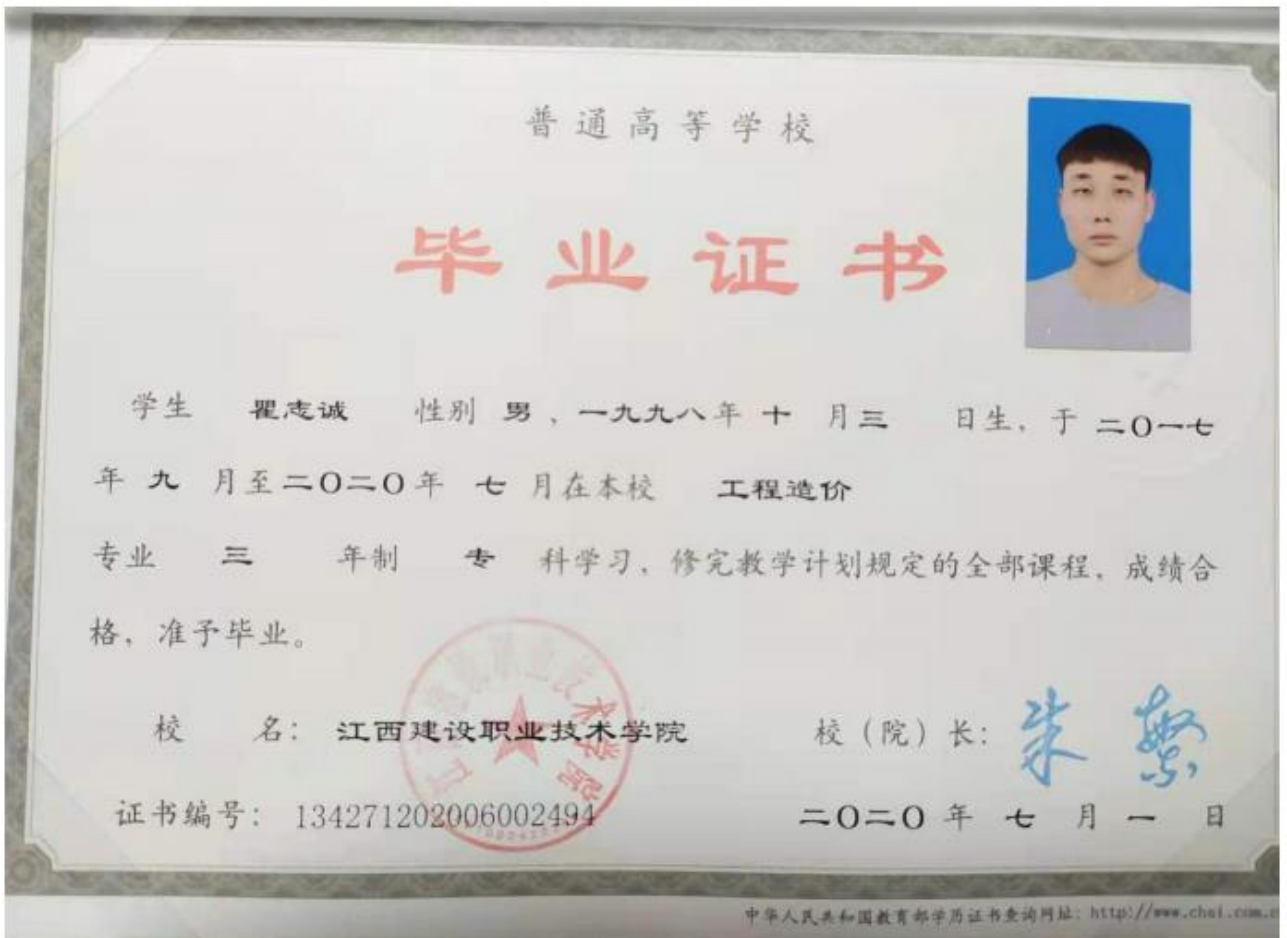 普通高等学校
毕业证书
学生 瞿志诚 性别 男，一九九八年 十 月 三 日生，于 二〇一七
年 九 月至 二〇二〇年 七 月在本校 工程造价
专业 三 年制 专 科学习，修完教学计划规定的全部课程，成绩合
格，准予毕业。
校 名：江西建设职业技术学院 校（院）长：朱 繁
证书编号：134271202006002494 二〇二〇年 七 月 一 日
中华人民共和国教育部学历证书查询网址：http://www.chsi.com.c